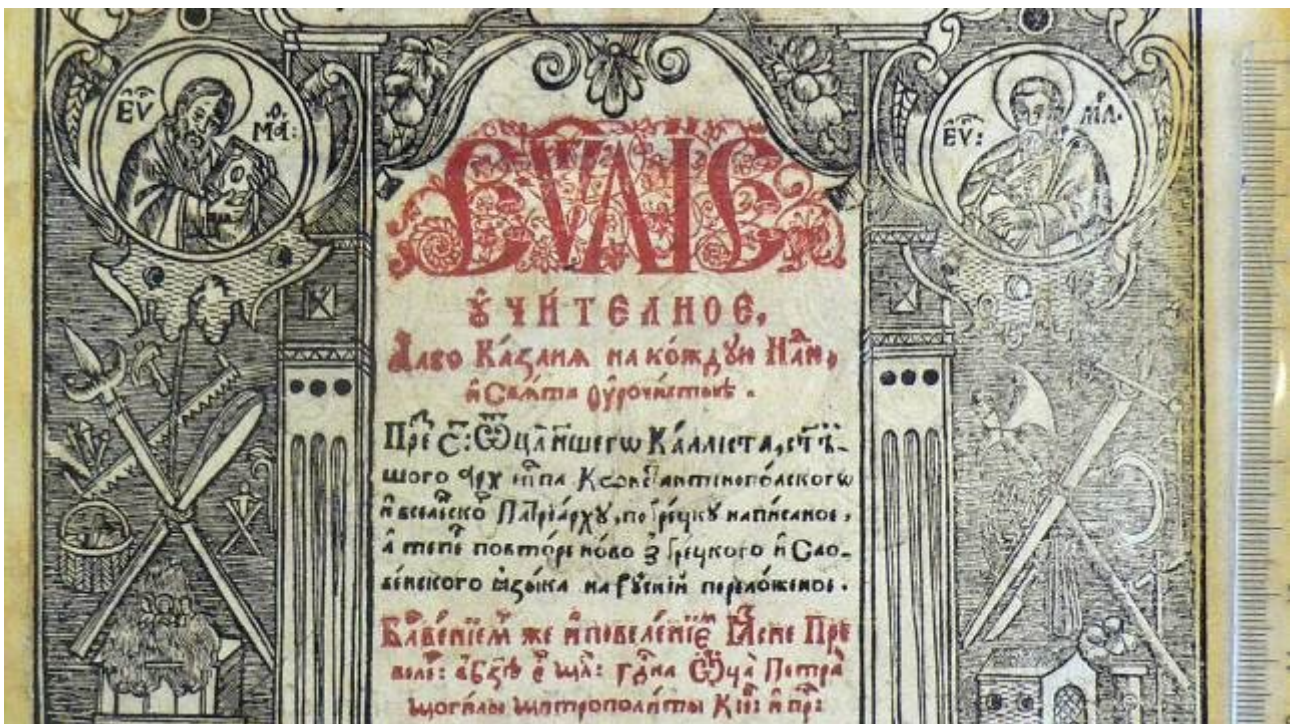 ЕѴ Маⷴ:
ЕѴ:
ЕѴⷢ҇ЛІЕ
ᲂу҆чи́телное,
Альбо Ка́занѧ на ко́ждую Нⷣлю,
и҆ Свѧ́та оурочи́стыѣ.
Прⷥе С: Ѿца́ н҃шегѡ Ка́лліста, ст҃ѣ-
шого Арх іеⷫ҇па Кѡнстантинопо́лскогѡ
и҆ вселе́ско Патрїа́рху, по Гре́цку написаное,
а҆ тепⷬе повто́ре но́во з̾ Гре́цкого и҆ Сло-
ве́нского ꙗ҆зы́ка на Ру́скїй перело́женое.
Блⷭ҇ве́нїем же и҆ повеле́нїем Ꙗсне Пре
велⷨ: въ Бз҃ѣ є҆го мл҃: гдⷭ҇на Ѿца̀ Петра̀
Моги́лы Митрополи́ты Кїе: и҆ прⷱ: